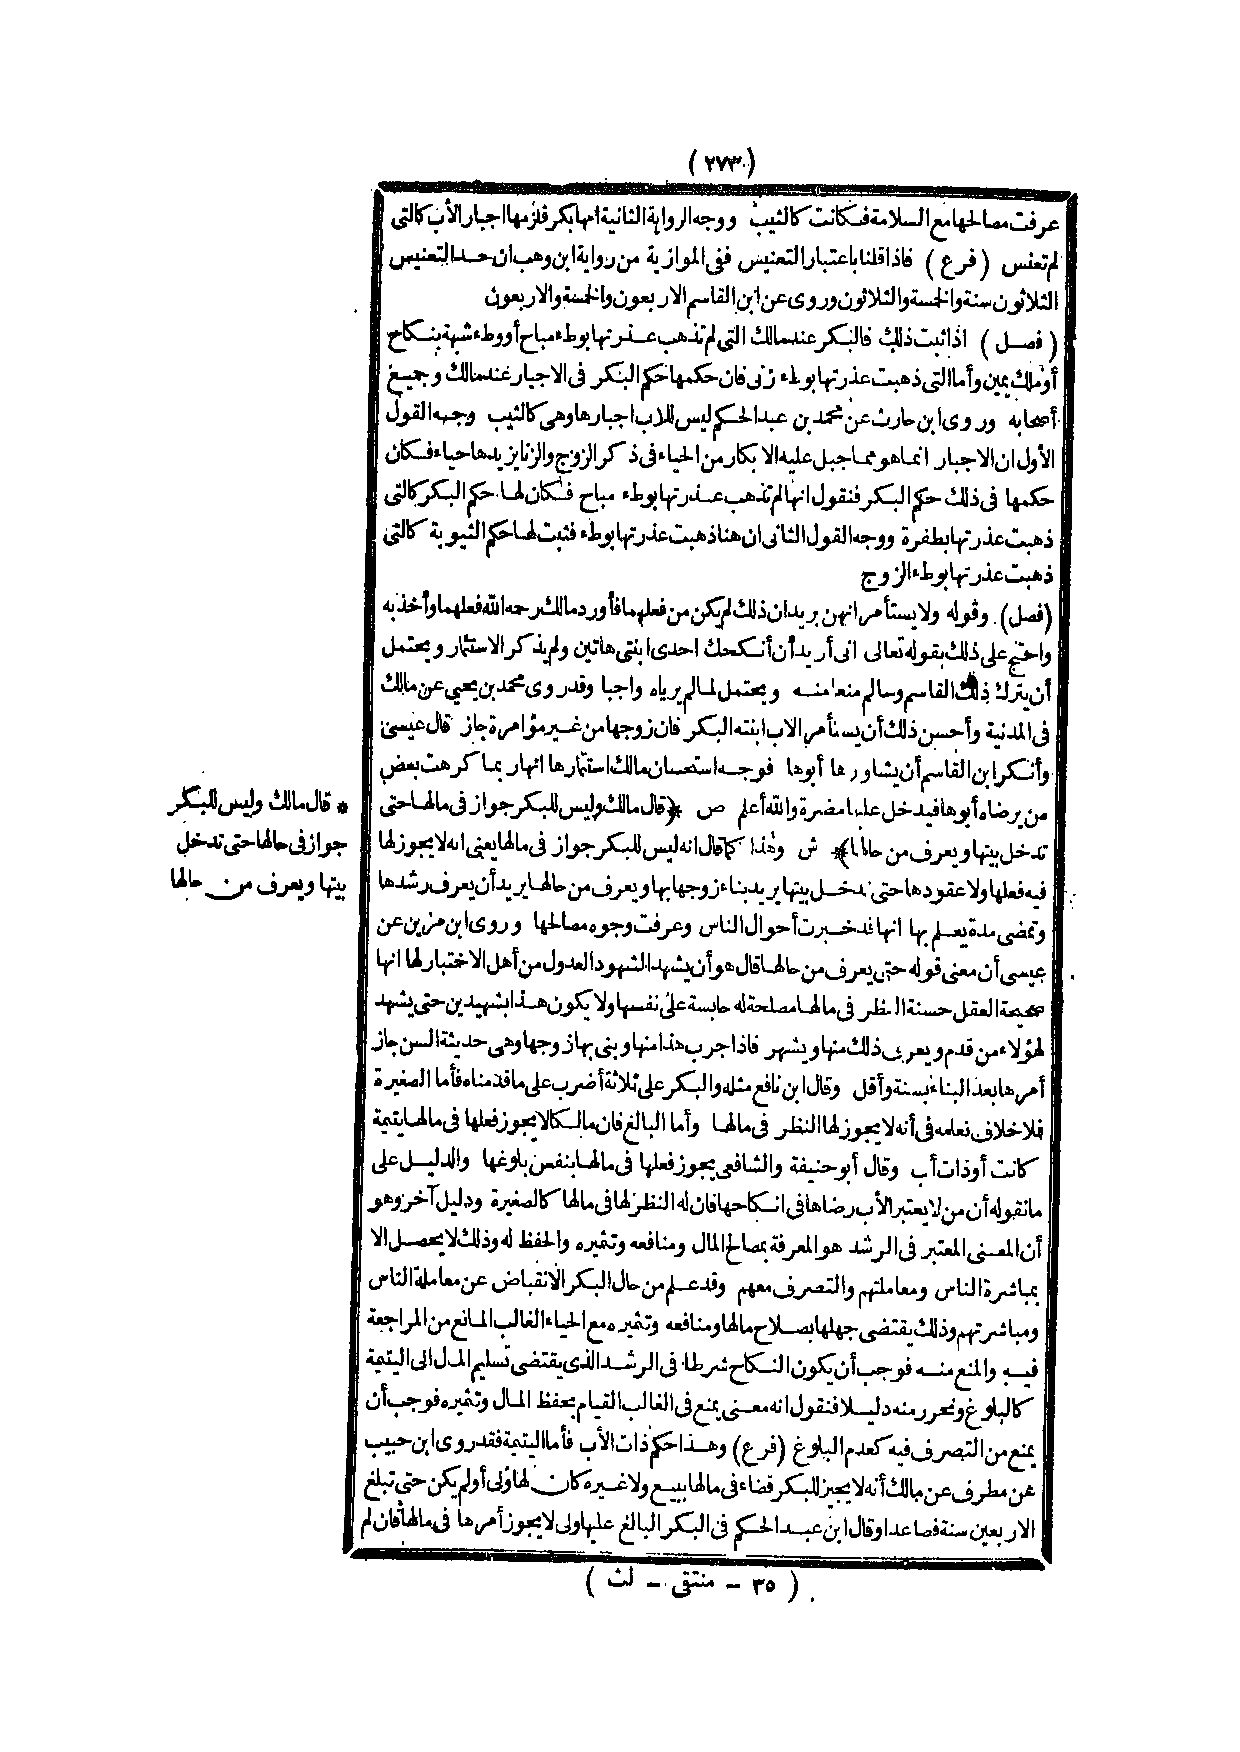 (٢٧٣)
عرفت مصالحها مع السلامة فكانت كالثيب ووجه الرواية الثانية انها بكر فلزمها اجبار الأب كالتى
لم تعنس (فرع) فاذا قلنا باعتبار التعنيس ففى الموازية من رواية ابن وهب ان حد التعنيس
الثلاثون سنة والخمسة والثلاثون وروى عن ابن القاسم الاربعون والخمسة والاربعون
(فصل) اذا ثبت ذلك فالبكر عند مالك التى لم تذهب عذرتها بوطء مباح أو وطء شبهة بنكاح
أو ملك يمين وأما التى ذهبت عذرتها بوطء زنى فان حكمها حكم البكر فى الاجبار عند مالك وجميع
أصحابه وروى ابن حارث عن محمد بن عبد الحكم ليس للاب اجبارها وهى كالثيب وجه القول
الأول ان الاجبار انما هو مما جبل عليه الابكار من الحياء فى ذكر الزوج والزنا يزيدها حياء فكان
حكمها فى ذلك حكم البكر فنقول انها لم تذهب عذرتها بوطء مباح فكان لها حكم البكر كالتى
ذهبت عذرتها بطفرة ووجه القول الثانى ان هنا ذهبت عذرتها بوطء فثبت لها حكم الثيوبة كالتى
ذهبت عذرتها بوطء الزوج
(فصل) وقوله ولا يستأمرانهن يريد ان ذلك لم يكن من فعلهما فأورد مالك رحمه الله فعلهما وأخذ به
واحتج على ذلك بقوله تعالى انى أريد أن أنكحك احدى ابنتى هاتين ولم يذكر الاستئمار ويحتمل
أن يترك ذلك القاسم وسالم منعا منه ويحتمل لما لم يرياه واجبا وقد روى محمد بن يحيى عن مالك
فى المدنية وأحسن ذلك أن يستأمر الاب ابنته البكر فان زوجها من غير مؤامرة جاز قال عيسى
وأنكر ابن القاسم أن يشاورها أبوها فوجه استحسان مالك استئمارها انها ربما كرهت بعض
من يرضاه أبوها فيدخل عليها مضرة والله أعلم ص ﴿قال مالك وليس للبكر جواز فى مالها حتى
تدخل بيتها ويعرف من حالها﴾ ش وهذا كما قال انه ليس للبكر جواز فى مالها يعنى انه لا يجوز لها
فيه فعلها ولا عقودها حتى تدخل بيتها يريد بناء زوجها بها ويعرف من حالها يريد أن يعرف رشدها
وتمضى مدة يعلم بها انها قد خبرت أحوال الناس وعرفت وجوه مصالحها وروى ابن مزين عن
عيسى أن معنى قوله حتى يعرف من حالها قال هو أن يشهد الشهود العدول من أهل الاختبار لها انها
صحيحة العقل حسنة النظر فى مالها مصلحة له حابسة على نفسها ولا يكون هذا بشهيدين حتى يشهد
لهؤلاء من قدم ويعرف ذلك منها ويشهر فاذا جرب هذا منها وبنى بها زوجها وهى حديثة السن جاز
أمرها بعد البناء بسنة وأقل وقال ابن نافع مثله والبكر على ثلاثة أضرب على ما قدمناه فأما الصغيرة
فلا خلاف نعلمه فى أنه لا يجوز لها النظر فى مالها وأما البالغ فان مالكا لا يجوز فعلها فى مالها يتيمة
كانت أو ذات أب وقال أبو حنيفة والشافعى يجوز فعلها فى مالها بنفس بلوغها والدليل على
ما نقوله أن من لا يعتبر الأب رضاها فى انكاحها فان له النظر لها فى مالها كالصغيرة ودليل آخر وهو
أن المعنى المعتبر فى الرشد هو المعرفة بمصالح المال ومنافعه وتثميره والحفظ له وذلك لا يحصل الا
بمباشرة الناس ومعاملتهم والتصرف معهم وقد علم من حال البكر الانقباض عن معاملة الناس
ومباشرتهم وذلك يقتضى جهلها بصلاح مالها ومنافعه وتثميره مع الحياء الغالب المانع من المراجعة
فيه والمنع منه فوجب أن يكون النكاح شرطا فى الرشد الذى يقتضى تسليم المال الى اليتيمة
كالبلوغ ونحرر منه دليلا فنقول انه معنى يمنع فى الغالب القيام بحفظ المال وتثميره فوجب أن
يمنع من التصرف فيه كعدم البلوغ (فرع) وهذا حكم ذات الأب فأما اليتيمة فقد روى ابن حبيب
عن مطرف عن مالك أنه لا يجيز للبكر قضاء فى مالها ببيع ولا غيره كان لها ولى أو لم يكن حتى تبلغ
الاربعين سنة فصاعدا وقال ابن عبد الحكم فى البكر البالغ عليها ولى لا يجوز أمرها فى مالها فان لم
* قال مالك وليس للبكر
جواز فى مالها حتى تدخل
بيتها ويعرف من حالها
(٣٥ - منتقى - لث)